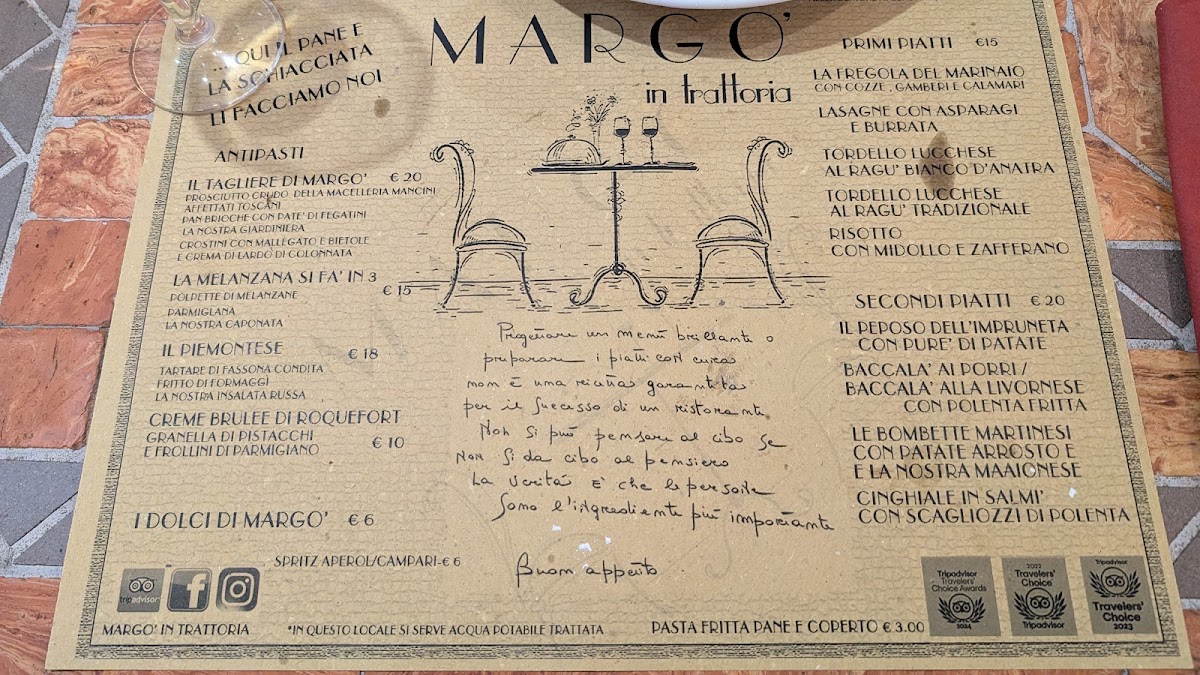 MARGO'
in trattoria
... QUI IL PANE E
LA SCHIACCIATA
LI FACCIAMO NOI
ANTIPASTI
IL TAGLIERE DI MARGO' € 20
PROSCIUTTO CRUDO DELLA MACELLERIA MANCINI
AFFETTATI TOSCANI
PAN BRIOCHE CON PATE' DI FEGATINI
LA NOSTRA GIARDINIERA
CROSTINI CON MALLEGATO E BIETOLE
E CREMA DI LARDO DI COLONNATA
LA MELANZANA SI FA' IN 3 € 15
POLPETTE DI MELANZANE
PARMIGIANA
LA NOSTRA CAPONATA
IL PIEMONTESE € 18
TARTARE DI FASSONA CONDITA
FRITTO DI FORMAGGI
LA NOSTRA INSALATA RUSSA
CREME BRULEE DI ROQUEFORT
GRANELLA DI PISTACCHI € 10
E FROLLINI DI PARMIGIANO
I DOLCI DI MARGO' € 6
SPRITZ APEROL/CAMPARI-€ 6
PRIMI PIATTI €15
LA FREGOLA DEL MARINAIO
CON COZZE , GAMBERI E CALAMARI
LASAGNE CON ASPARAGI
E BURRATA
TORDELLO LUCCHESE
AL RAGU' BIANCO D'ANATRA
TORDELLO LUCCHESE
AL RAGU' TRADIZIONALE
RISOTTO
CON MIDOLLO E ZAFFERANO
SECONDI PIATTI € 20
IL PEPOSO DELL'IMPRUNETA
CON PURE' DI PATATE
BACCALA' AI PORRI /
BACCALA' ALLA LIVORNESE
CON POLENTA FRITTA
LE BOMBETTE MARTINESI
CON PATATE ARROSTO E
E LA NOSTRA MAAIONESE
CINGHIALE IN SALMI'
CON SCAGLIOZZI DI POLENTA
Progettare un menù brillante o
preparare i piatti con cura
non è una ricetta garantita
per il successo di un ristorante
Non si può pensare al cibo se
Non si da cibo al pensiero
La verità è che le persone
Sono l'ingrediente più importante
Buon appetito
tripadvisor
MARGO' IN TRATTORIA
*IN QUESTO LOCALE SI SERVE ACQUA POTABILE TRATTATA
PASTA FRITTA PANE E COPERTO € 3.00
Tripadvisor
Travelers'
Choice Awards
2024
2022
Travelers'
Choice
Tripadvisor
Tripadvisor
Travelers'
Choice
2023